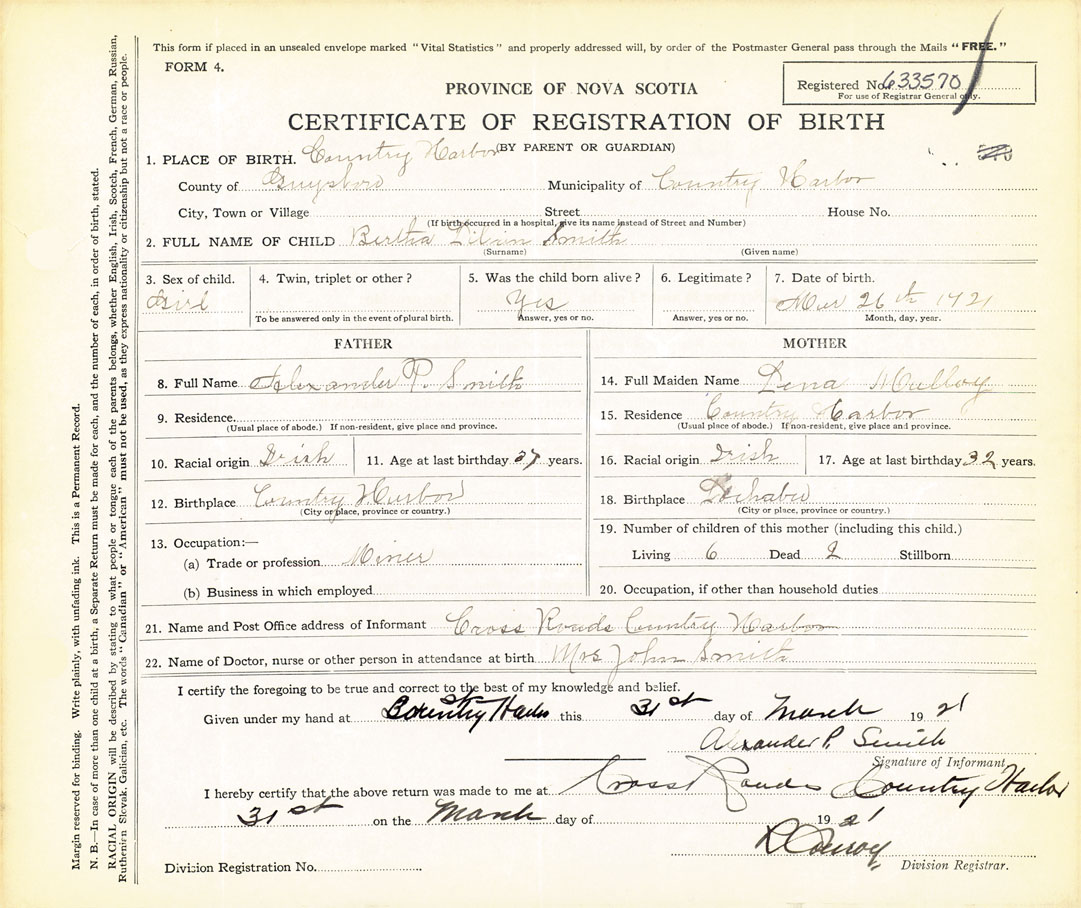 This form if placed in an unsealed envelope marked "Vital Statistics" and properly addressed will, by order of the Postmaster General pass through the Mails "FREE."
FORM 4.
Registered No. 633570
For use of Registrar General only.
PROVINCE OF NOVA SCOTIA
CERTIFICATE OF REGISTRATION OF BIRTH
(BY PARENT OR GUARDIAN)
1. PLACE OF BIRTH. Country Harbor
County of Guysboro Municipality of Country Harbor
City, Town or Village Street House No.
(If birth occurred in a hospital, give its name instead of Street and Number)
2. FULL NAME OF CHILD Bertha Smith
(Surname) (Given name)
3. Sex of child. 4. Twin, triplet or other? 5. Was the child born alive? 6. Legitimate? 7. Date of birth.
Girl Yes Mar 26th 1921
To be answered only in the event of plural birth. Answer, yes or no. Answer, yes or no. Month, day, year.
FATHER
8. Full Name Alexander P. Smith
9. Residence.
(Usual place of abode.) If non-resident, give place and province.
10. Racial origin Irish 11. Age at last birthday 37 years.
12. Birthplace Country Harbor
(City or place, province or country.)
13. Occupation:—
(a) Trade or profession Miner
(b) Business in which employed
MOTHER
14. Full Maiden Name Lena Mulloy
15. Residence Country Harbor
(Usual place of abode.) If non-resident, give place and province.
16. Racial origin Irish 17. Age at last birthday 32 years.
18. Birthplace
(City or place, province or country.)
19. Number of children of this mother (including this child.)
Living 6 Dead 2 Stillborn
20. Occupation, if other than household duties
21. Name and Post Office address of Informant Cross Roads Country Harbor
22. Name of Doctor, nurse or other person in attendance at birth Mrs John Smith
I certify the foregoing to be true and correct to the best of my knowledge and belief.
Given under my hand at Country Harbor this 31st day of March 1921
Alexander P. Smith
Signature of Informant
I hereby certify that the above return was made to me at Cross Roads Country Harbor
31st on the March day of 1921
Division Registrar.
Division Registration No.
Margin reserved for binding. Write plainly, with unfading ink. This is a Permanent Record.
N. B.—In case of more than one child at a birth, a Separate Return must be made for each, and the number of each, in order of birth, stated.
RACIAL ORIGIN will be described by stating to what people or tongue each of the parents belongs, whether English, Irish, Scotch, French, German, Russian,
Ruthenirn Slovak, Galician, etc. The words "Canadian" or "American" must not be used, as they express nationality or citizenship but not a race or people.